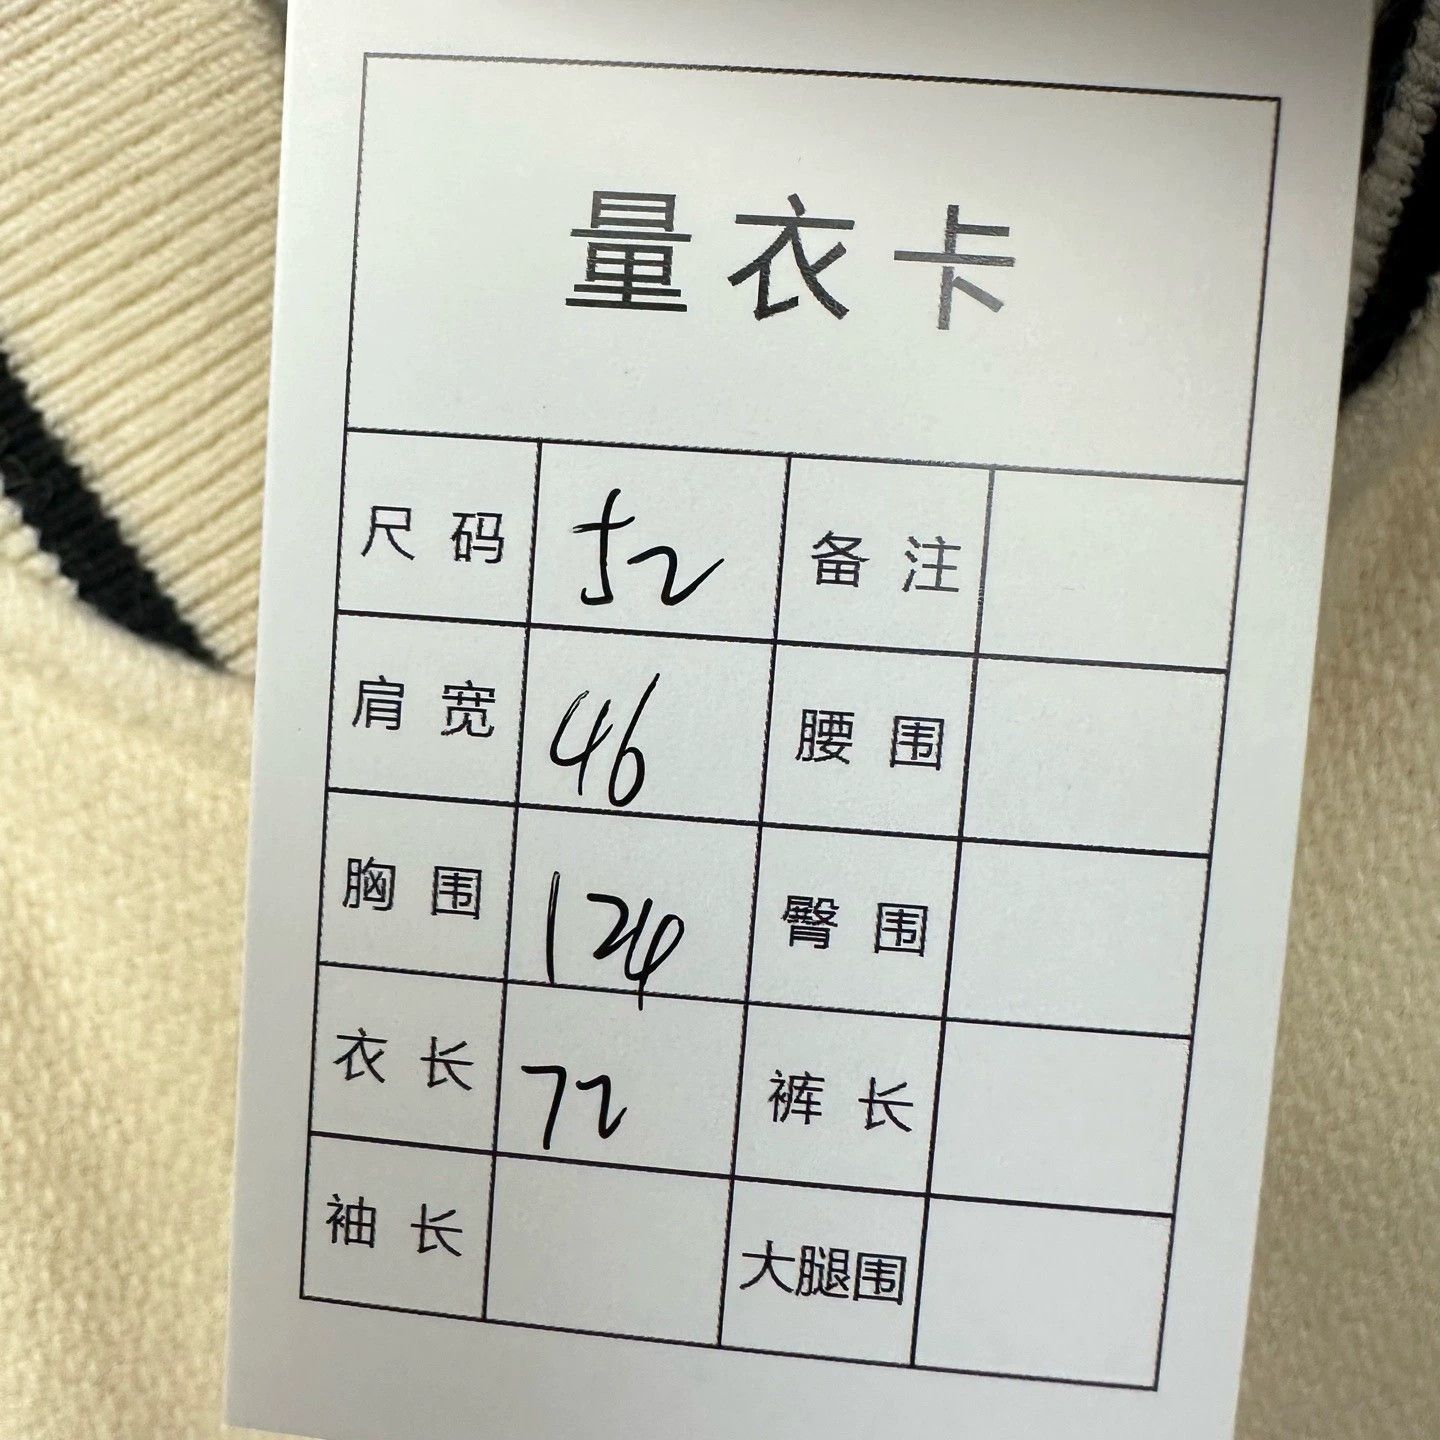 量衣卡
尺码 52 备注
肩宽 46 腰围
胸围 124 臀围
衣长 72 裤长
袖长 大腿围